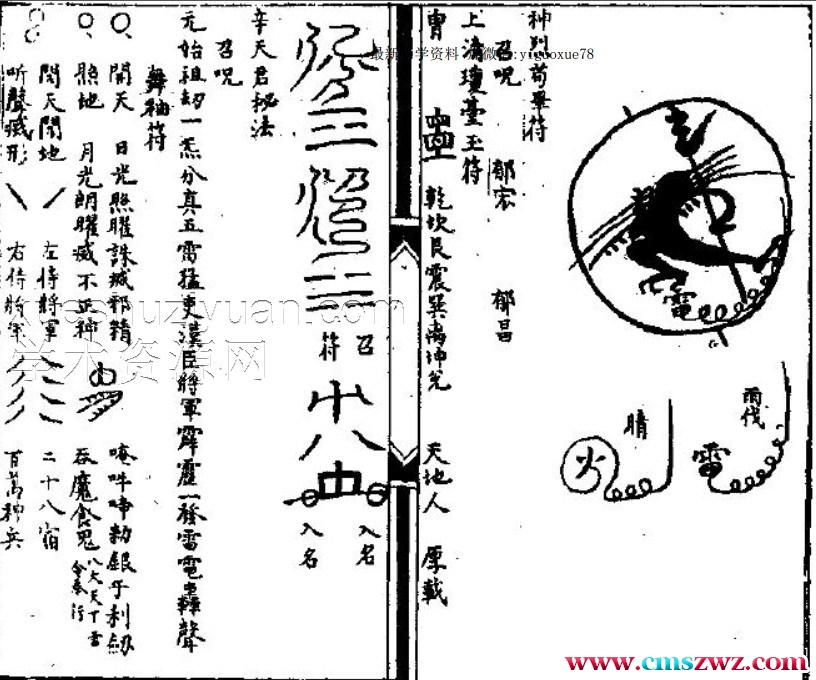 神别苟畢符
召咒 郁宏 郁昌
上清瓊臺玉符
乾坎艮震巽离坤兑 天地人 原載
電
雨伐
雷
晴
火
召
符
入名
入名
辛天君秘法
召咒
元始祖劫一炁分真五雷猛吏漢臣將軍霹靂一發雷電轟聲
舞袖符
開天 日光照曜誅滅邪精 唵吽啼勅銀牙利劍
照地 月光朗曜滅不正神 吞魔食鬼 八大天丁雷令奉行
開天闢地 左侍將軍 二十八宿
听聲滅形 右侍將軍 百萬神兵
最新 学资料 微 :yiguoxue78
学术资源网
www.cmszwz.com